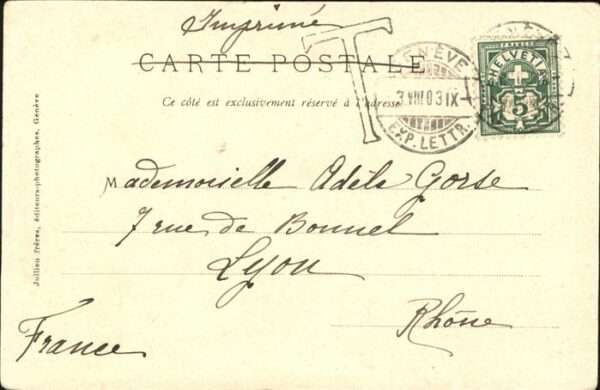 Imprimé
CARTE POSTALE
Ce côté est exclusivement réservé à l'adresse
T
GENÈVE
3.VIII.03.IX
EXP. LETTR.
FRANCO
HELVETIA
5
Mademoiselle Adèle Gorse
7 rue de Bonnel
Lyon
Rhône
France
Jullien frères, éditeurs-photographes, Genève